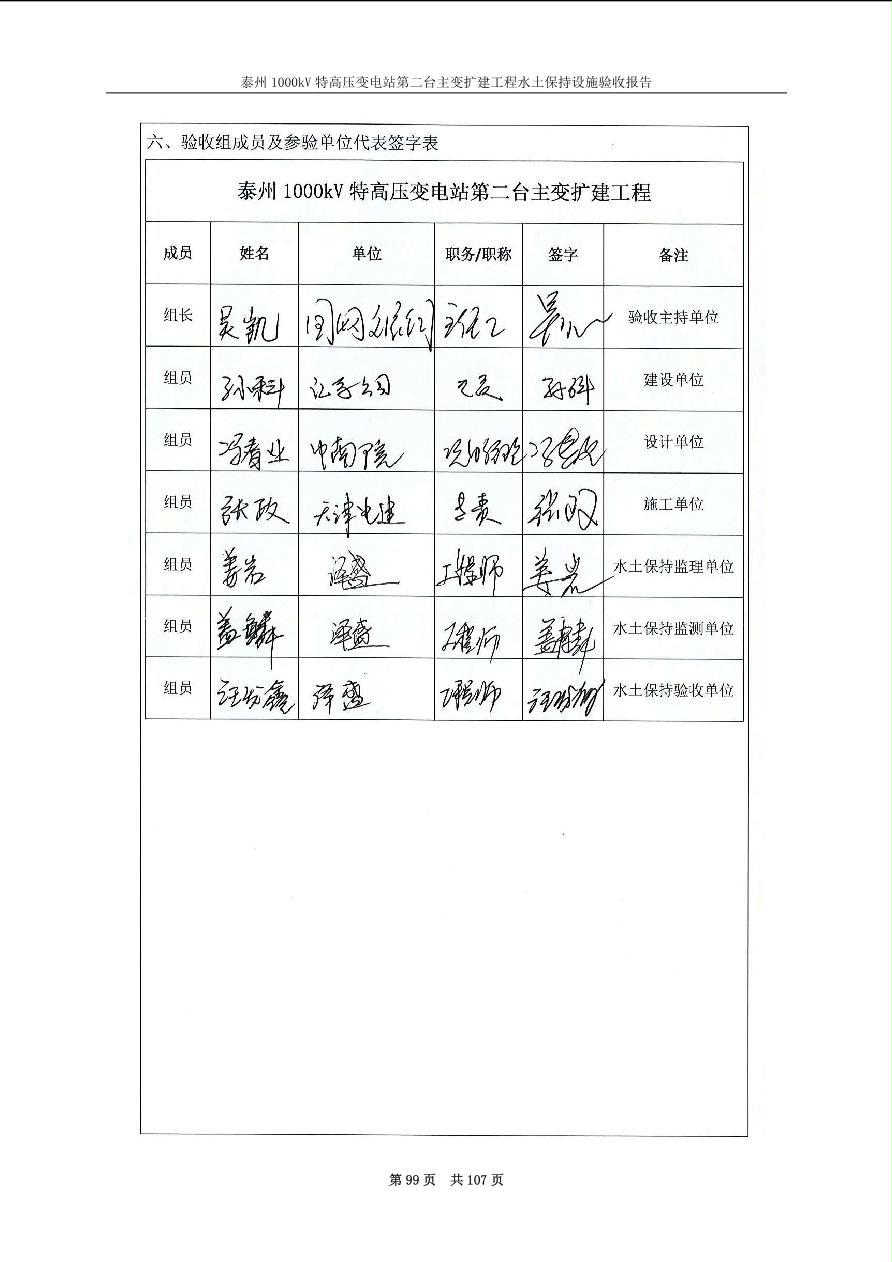 泰州 1000kV 特高压变电站第二台主变扩建工程水土保持设施验收报告
六、验收组成员及参验单位代表签字表
泰州 1000kV 特高压变电站第二台主变扩建工程
成员 姓名 单位 职务/职称 签字 备注
组长 吴凯 国网 验收主持单位
组员 孙科 公司 孙科 建设单位
组员 冯春业 中南院 设计单位
组员 张政 天津电建 施工单位
组员 姜岩 泽盛 工程师 姜岩 水土保持监理单位
组员 盖麟 泽盛 工程师 水土保持监测单位
组员 泽盛 工程师 水土保持验收单位
第 99 页 共 107 页